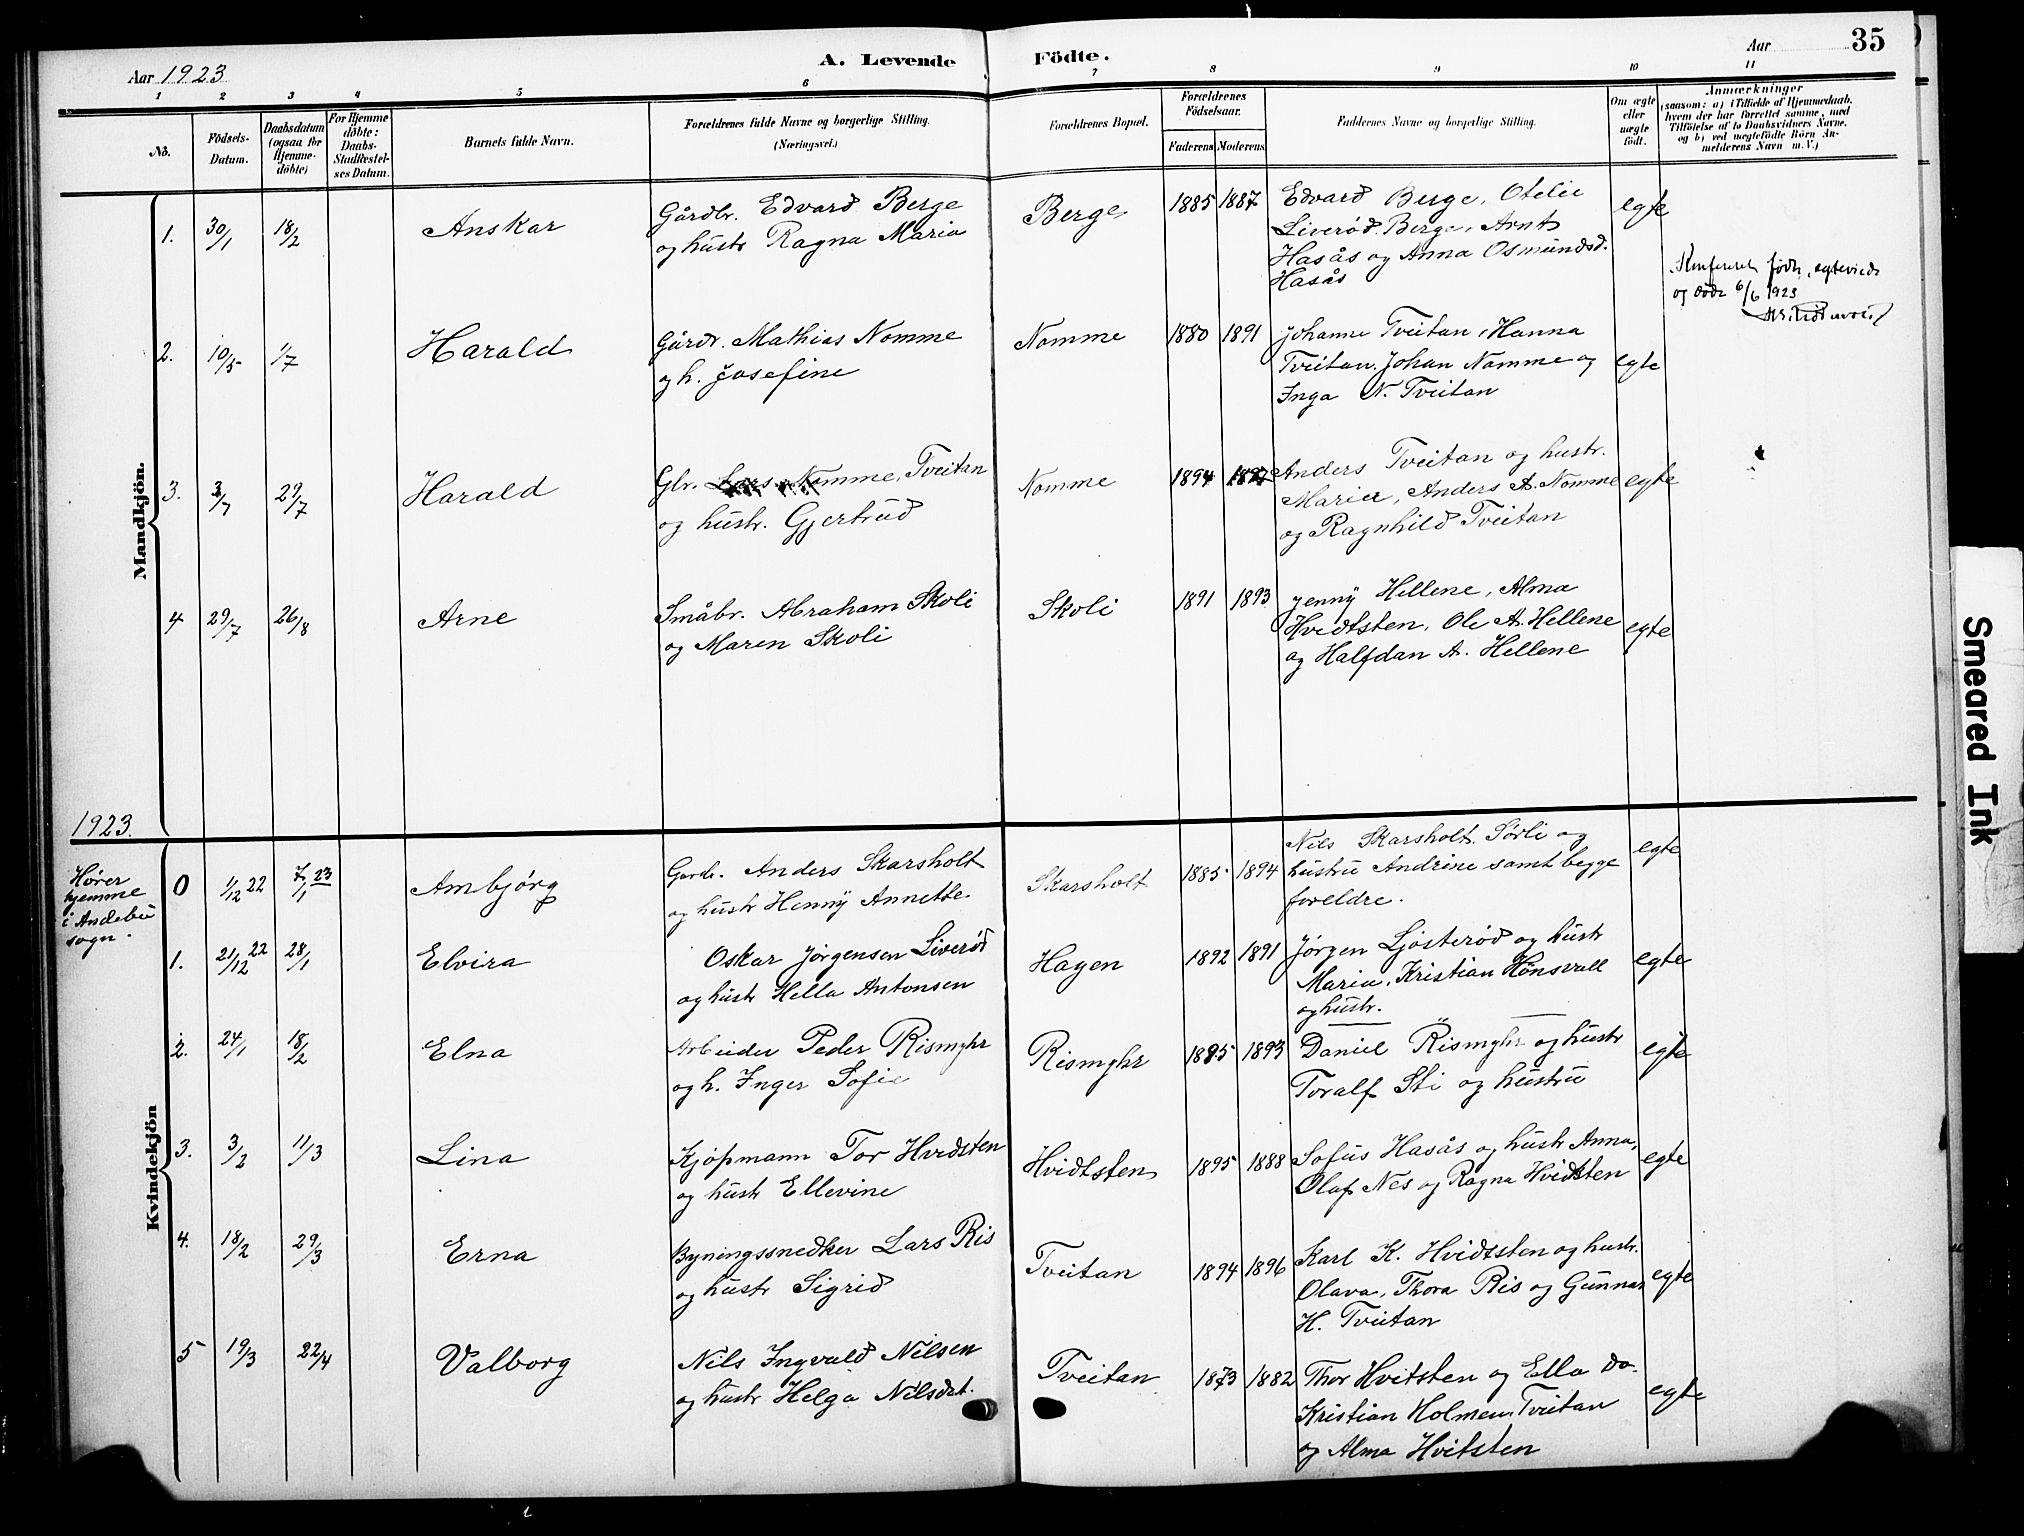 35
Aar 1923
A. Levende Födte.
Aar
1 2 3 4 5 6 7 8 9 10 11
No.
Födsels-Datum.
Daabsdatum (ogsaa for Hjemmedöbte)
For Hjemmedöbte: Daabs-Stadfæstelses Datum.
Barnets fulde Navn.
Forældrenes fulde Navne og borgerlige Stilling. (Næringsvei.)
Forældrenes Bopæl.
Forældrenes Födselsaar.
Faderens Moderens
Faddernes Navne og borgerlige Stilling.
Om ægte eller uægte födt.
Anmærkninger
(saasom: a) i Tilfælde af Hjemmedaab,
hvem der har forrettet samme, med
Tilföielse af to Daabsvidners Navne,
og b) ved uægtefödte Börn An-
melderens Navn m. V.)
Mandkjön.
1. 30/1 18/2 Anskar Gårdbr. Edvard Berge Berge 1885 1887 Edvard Berge, Otelie egte
og hustr Ragna Maria Liverød Berge, Arnt
Hasås og Anna Osmundsd.
Hasås
Konfereret fødte, egteviede
og døde 6/6 1923
2. 10/5 1/7 Harald Gårdr. Mathias Nomme Nomme 1880 1891 Johanne Tveitan, Hanna egte
og h. Josefine Tveitan, Johan Nomme og
Inga N. Tveitan
3. 3/7 29/7 Harald Gbr. Lars Nomme, Tveitan Nomme 1894 Anders Tveitan og hustr. egte
og hustr. Gjertrud Marie, Anders A. Nomme
og Ragnhild Tveitan
4 29/7 26/8 Arne Småbr. Abraham Skoli Skoli 1891 1893 Jenny Hellene, Alma egte
og Maren Skoli Hvidtsten, Ole A. Hellene
og Halfdan A. Hellene
1923.
Hører
hjemme
i Andebu
sogn.
Kvindekjön
0 1/12 22 7/1 23 Ambjørg Gardr. Anders Skarsholt Skarsholt 1885 1894 Nils Skarsholt, Sørli og egte
og hustr Henny Annette hustru Andrine samt begge
foreldre.
1. 21/12 22 28/1 Elvira Oskar Jørgensen Liverød Hagen 1892 1891 Jørgen Ljøsterød og hustr egte
og hustr Hella Antonsen Marie, Kristian Hønsvall
og hustr.
2. 24/1 18/2 Elna Arbeider Peder Rismyhr Rismyhr 1895 1893 Daniel Rismyhr og hustr egte
og h. Inger Sofie Toralf Sti og hustru
3. 3/2 11/3 Lina Kjøpmann Tor Hvidsten Hvidtsten 1895 1888 Sofus Hasås og hustr Anna, egte
og hustr Ellevine Olaf Nes og Ragna Hvidtsten
4. 18/2 29/3 Erna Bygningssnedker Lars Ris Tveitan 1894 1896 Karl K. Hvidtsten og hustr. egte
og hustr Sigrid Olava, Thora Ris og Gunnar
H. Tveitan
5 19/3 22/4 Valborg Nils Ingvald Nilsen Tveitan 1873 1882 Thor Hvitsten og Ella do. egte
og hustr Helga Nilsdat. Kristian Holmen, Tveitan
og Alma Hvitsten
Smeared Ink